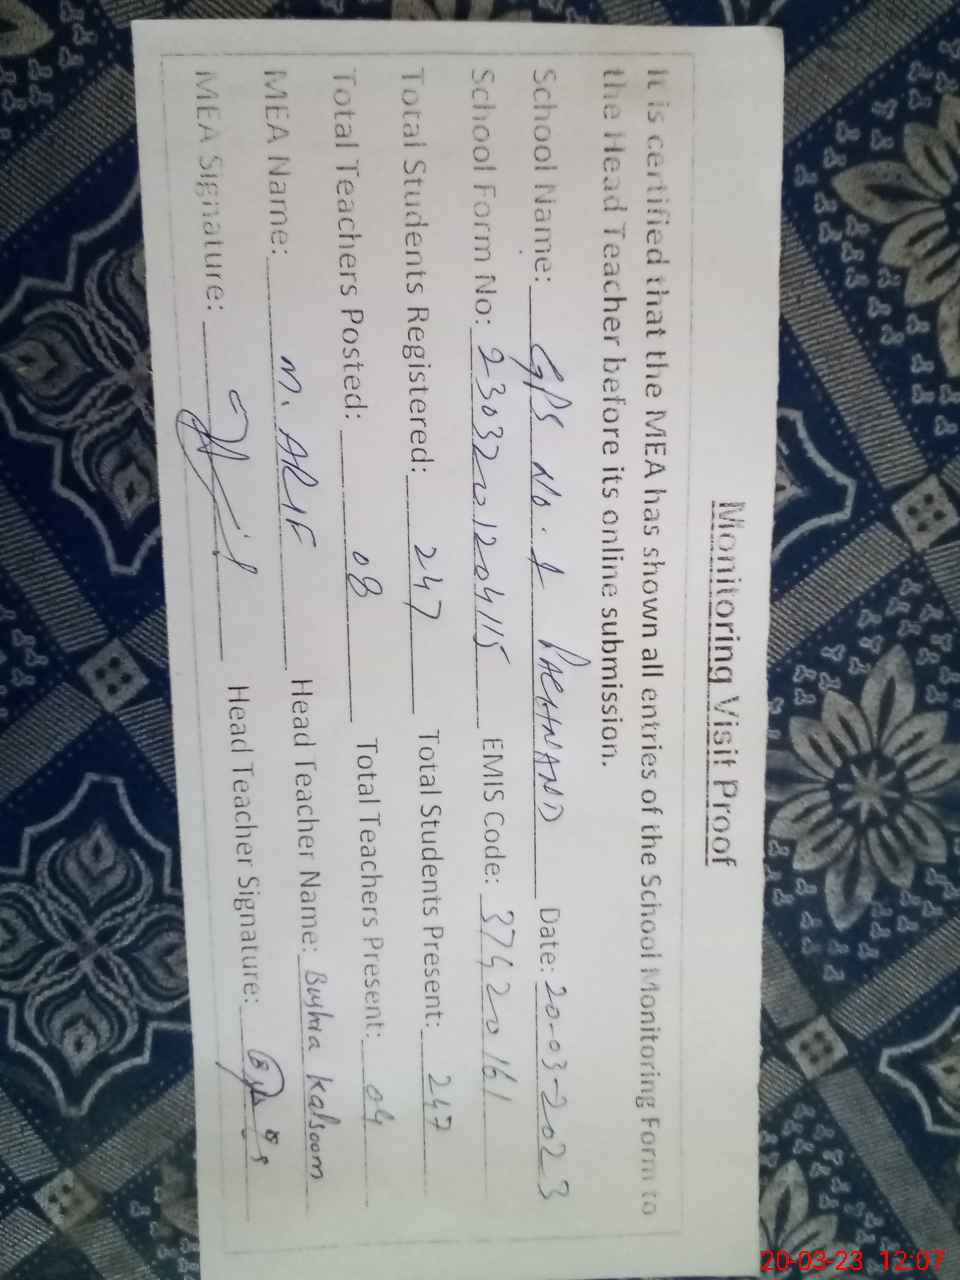 Monitoring Visit Proof
It is certified that the MEA has shown all entries of the School Monitoring Form to
the Head Teacher before its online submission.
School Name: GPS No. 1 PACHNAND Date: 20-03-2023
School Form No: 2303201204115 EMIS Code: 37420161
Total Students Registered: 247 Total Students Present: 247
Total Teachers Posted: 08 Total Teachers Present: 04
MEA Name: M. ARIF Head Teacher Name: Bushra Kalsoom
MEA Signature: Head Teacher Signature:
20-03-23 12:07